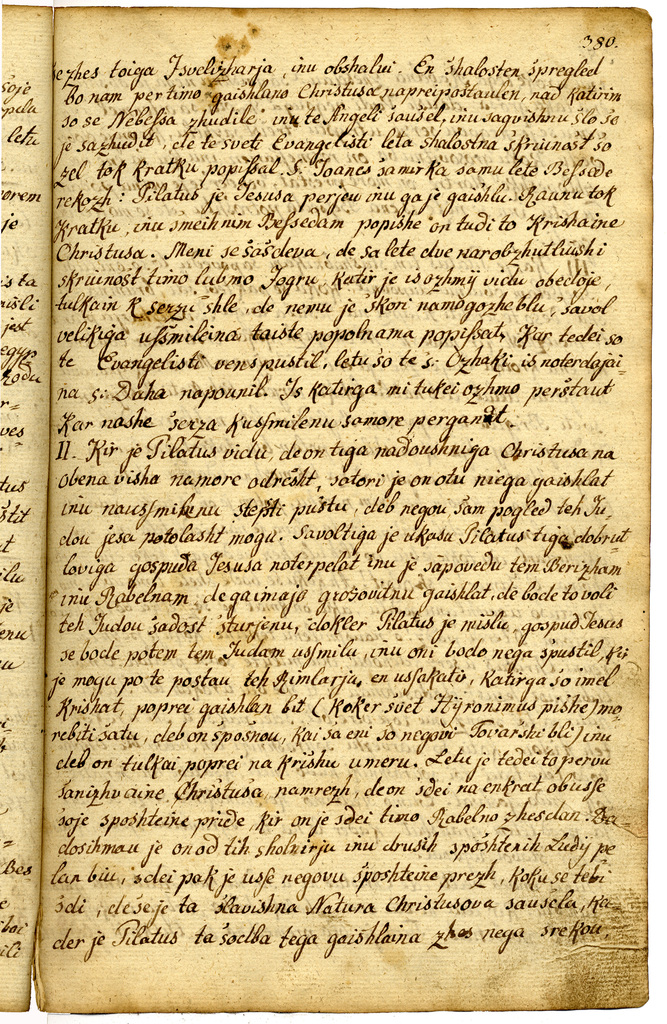 380.
se zhes toiga Isvelizharja, inu obshalui. En shalosten spregled
bo nam per timo gaishlano Christusa napreipostaulen, nad katirim
so se Nebessa zhudile, inu te Angeli sausel, inu sagvishnu slo so
je sazhudit, de te sveti Evangelisti leta shalostna skriunost so
zel tok kratku popissal. S. Joanes samirka samu lete Bessede
rekozh: Pilatus je Jesusa perjeu inu ga je gaishlu. Raunu tok
kratku, inu smeihnim Bessedam popishe on tudi to Krishaine
Christusa. Meni se sasdeva, de sa lete dve narobzhutliushi
skriunost timo lubmo Jogru, katir je is ozhmij vidu obedoje,
tulkain k serzu shle, de nemu je skori namogozhe blu, savol
velikiga usmileina taiste popolnama popissat. Kar tedei so
te Evangelisti venspustil, letu so te s. Ozhaki is noterdajai-
na s. Duha napounil. Is katirga mi tukei ozhmo perstaut
kar nashe serza kusmilenu samore perganat.
II. Kir je Pilatus vidu, de on tiga nadoushniga Christusa na
obena visha namore odresht, satori je on otu niega gaishlat
inu nausmilenu stepsti pustu, deb negou sam pogled teh Ju-
dou jesa potolasht mogu. Savoltiga je ukasu Pilatus tiga dobrut-
loviga gospuda Jesusa noterpelat inu je sapovedu tem Berizham
inu Rabelnam de ga imajo grosovitnu gaishlat, de bode to voli
teh Judou sadost sturjenu, dokler Pilatus je mislu, gospud Jesus
se bode potem tem Judam usmilu, inu oni bodo nega spustil, kir
je mogu po te postau teh Rimlarju, en ussakatir, katirga so imel
krishat, poprei gaishlan bit (koker svet Hyronimus pishe) mo-
rebiti satu, deb on sposnou, kai sa eni so negovi Tovarshi bli) inu
deb on tulkai poprei na krishu umeru. Letu je tedei ta pervu
sanizhvaine Christusa, namrezh, de on sdei na enkrat ob usse
soje sposhteine pride, kir on je sdei timo Rabelno zhesdan. Da-
dosihmau je on od tih sholnirju inu drusih sposhtenih Ludy pe-
lan biu, sdei pak je usse negovu sposhteine prezh, koku se tebi
sdi, de se je ta slavishna Natura Christusova sausela, ka-
der je Pilatus ta sodba tega gaishlaina zhes nega srekou,